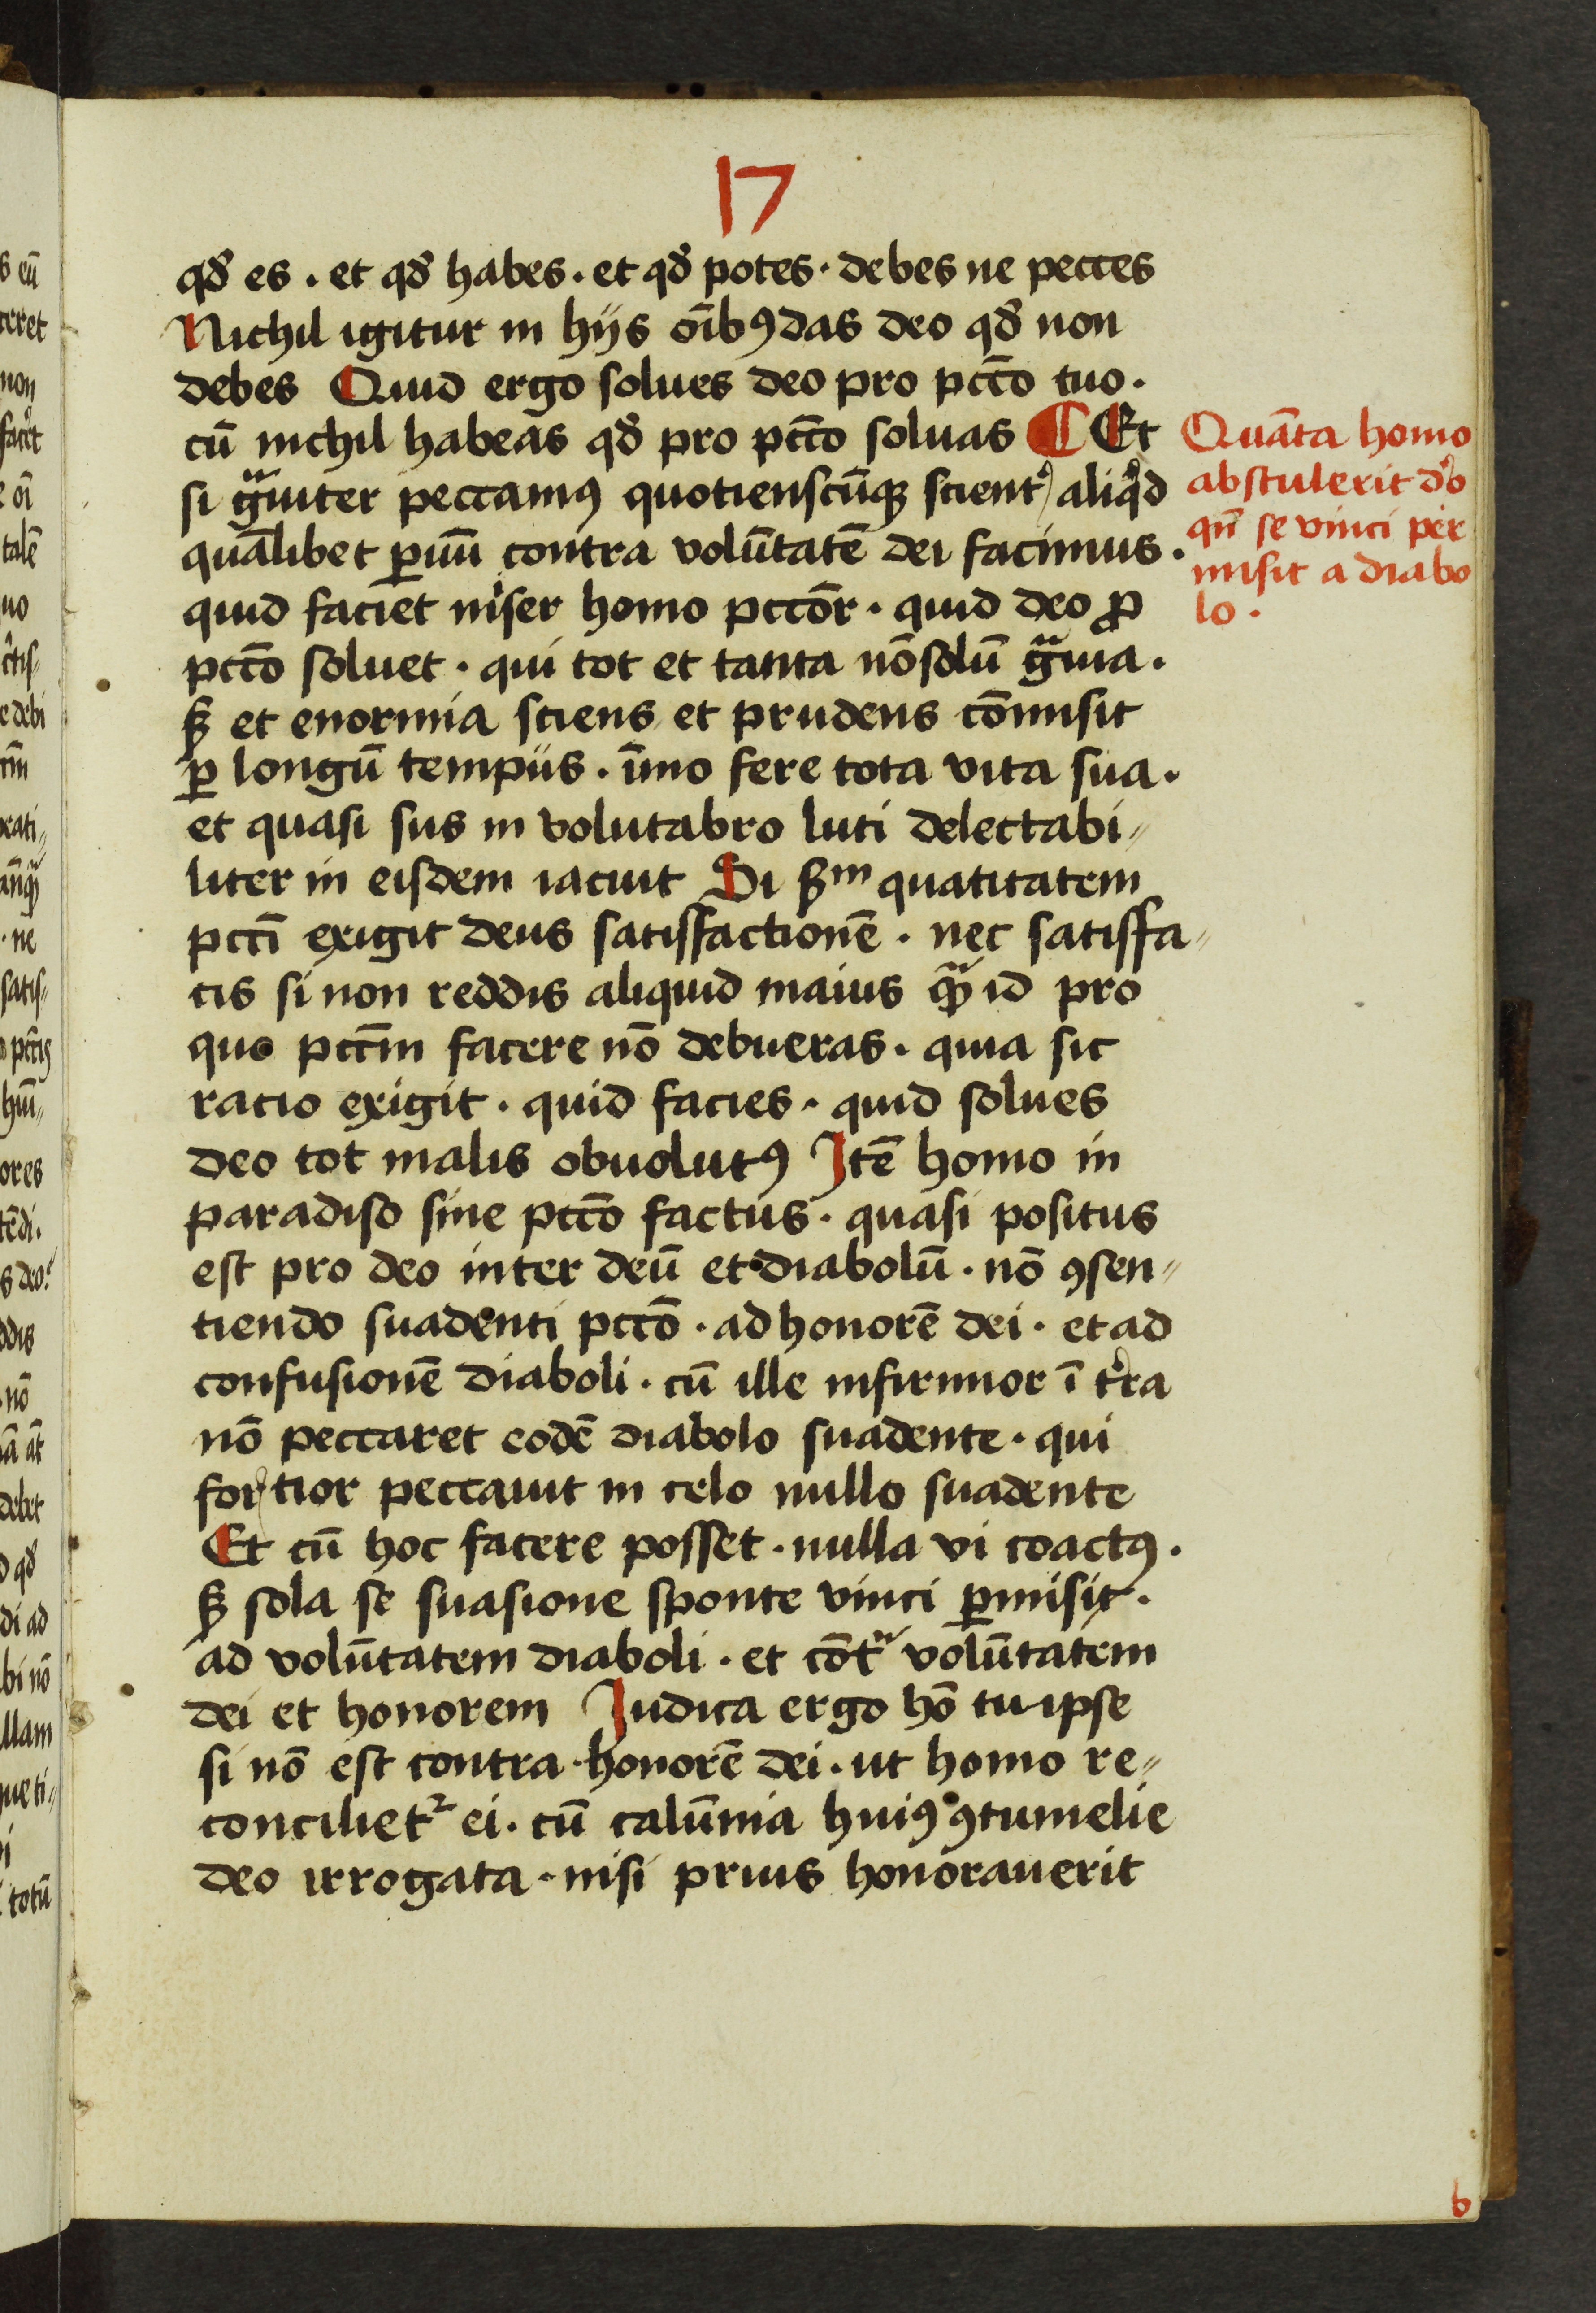 17
qđ es . et qđ habes . et qđ potes . debes ne pecces
Nichil igitur in hijs oīb9 das deo qđ non
debes Quid ergo solues deo pro pctō tuo .
cū nichil habeas qđ pro pctō soluas ¶ Et
si gͣuiter peccamꝰ quotienscūqꝫ scient᷑ aliqͥd
quālibet ꝑuū contra volūtatē dei facimus .
quid faciet miser homo pctōr . quid deo ꝓ
pctō soluet . qui tot et tanta nō solū gͣuia .
sꝫ et enormia sciens et prudens cōmisit
ꝑ longū tempus . īmo fere tota vita sua .
et quasi sus in volutabro luti delectabi〃
liter in eisdem iacuit Si sꝫm quātitatem
pctī exigit deus satisfactionē . nec satisfa〃
cis si non reddis aliquid maius qͣꝫ id pro
quo pctm̄ facere nō debueras . quia sic
racio exigit . quid facies . quid solues
deo tot malis obuolutꝰ Itē homo in
paradiso sine pctō factus . quasi positus
est pro deo inter deū et diabolū . nō ꝯsen〃
tiendo suadenti pctō . ad honorē dei . et ad
confusionē diaboli . cū ille infirmior ī t᷑ra
nō peccaret eodē diabolo suadente . qui
fortior peccauit in celo nullo suadente
Et cū hoc facere posset . nulla vi coactꝰ .
sꝫ sola se suasione sponte vinci ꝑmisit .
ad volūtatem diaboli . et cōtͣ volūtatem
dei et honorem Iudica ergo hō tu ipse
si nō est contra honorē dei . ut homo re〃
conciliet᷑ ei . cū calūmia huiꝰ ꝯtumelie
deo irrogata . nisi prius honorauerit
Quāta homo
abstulerit deo
qn̄ se vinci per
misit a diabo
lo .
b